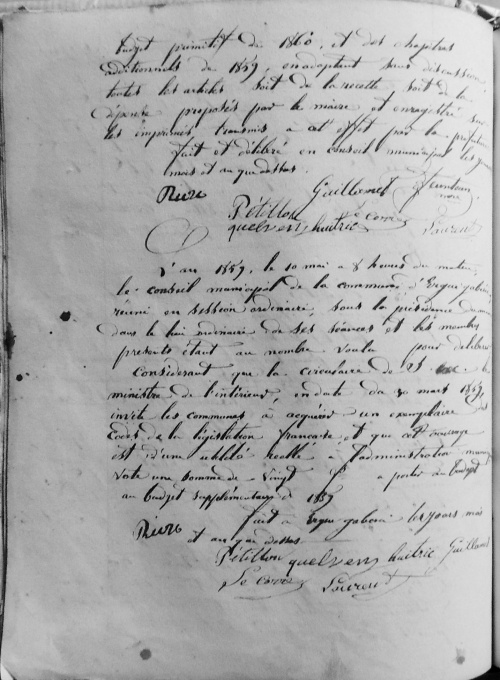 budget primitif de 1860, et des chapitres
additionnels de 1859, en adoptant sans discussion
toutes les articles soit de la recette, soit de la
dépense proposés par le maire et enregistré sur
les imprimés, transmis a cet effet par la préfecture
fait et délibéré en conseil municipal les jours
mois et an que dessus.
Guillamet
Pétillon
quelven huitric Le Corre Laurent
L'an 1859, le 10 mai a 8 heures du matin,
le conseil municipal de la commune d'Ergué gabéric,
réuni en session ordinaire, sous la présidence du maire
dans le lieu ordinaire de ses séances et les membres
presents étant au nombre voulu pour délibérer
Considerant que la circulaire de S. Exc. le
ministre de l'intérieur, en date du 30 mars 1859,
invite les communes à acquérir un exemplaire des
Codes de la législation française et que cet ouvrage
est d'une utilité réelle a l'administration
Vote une somme de vingt f. a porter au budget
au budget supplémentaire de 1859
fait à Ergué gabéric les jours mois
et an que dessus
Pétillon quelven huitric Guillamet
Le Corre Laurent